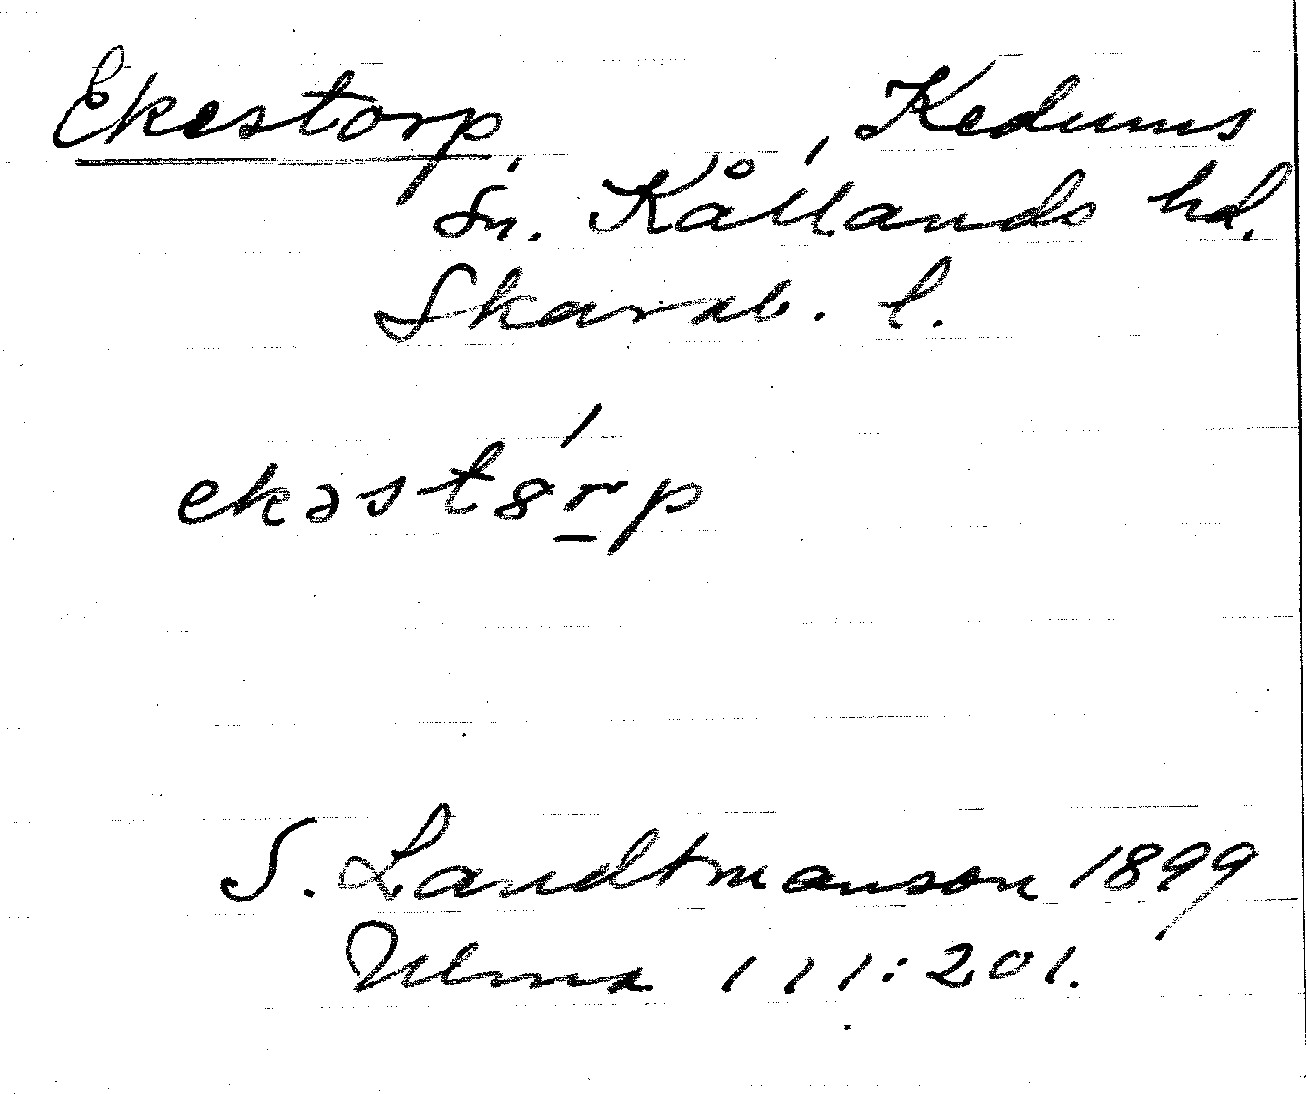 Ekestorp, Kedums
sn. Kållands hd.
Skarab. l.
ekəst8́r̲p
S. Landtmanson 1899
Ulma 111:201.